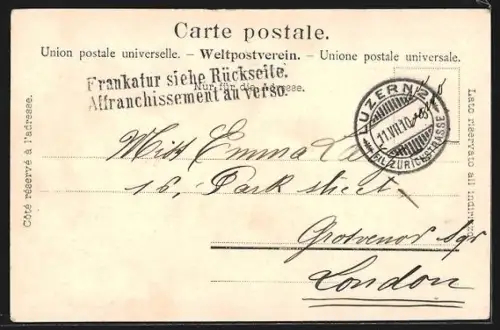 Carte postale.
Union postale universelle. - Weltpostverein. - Unione postale universale.
Frankatur siehe Rückseite.
Nur für die Adresse.
Affranchissement au verso.
LUZERN 2
11.VII.10.-6
FIL. ZÜRICHSTRASSE
Côté réservé à l'adresse.
Lato riservato all' indirizzo.
Miss Emma
16, Park street
Grosvenor Sqr
London